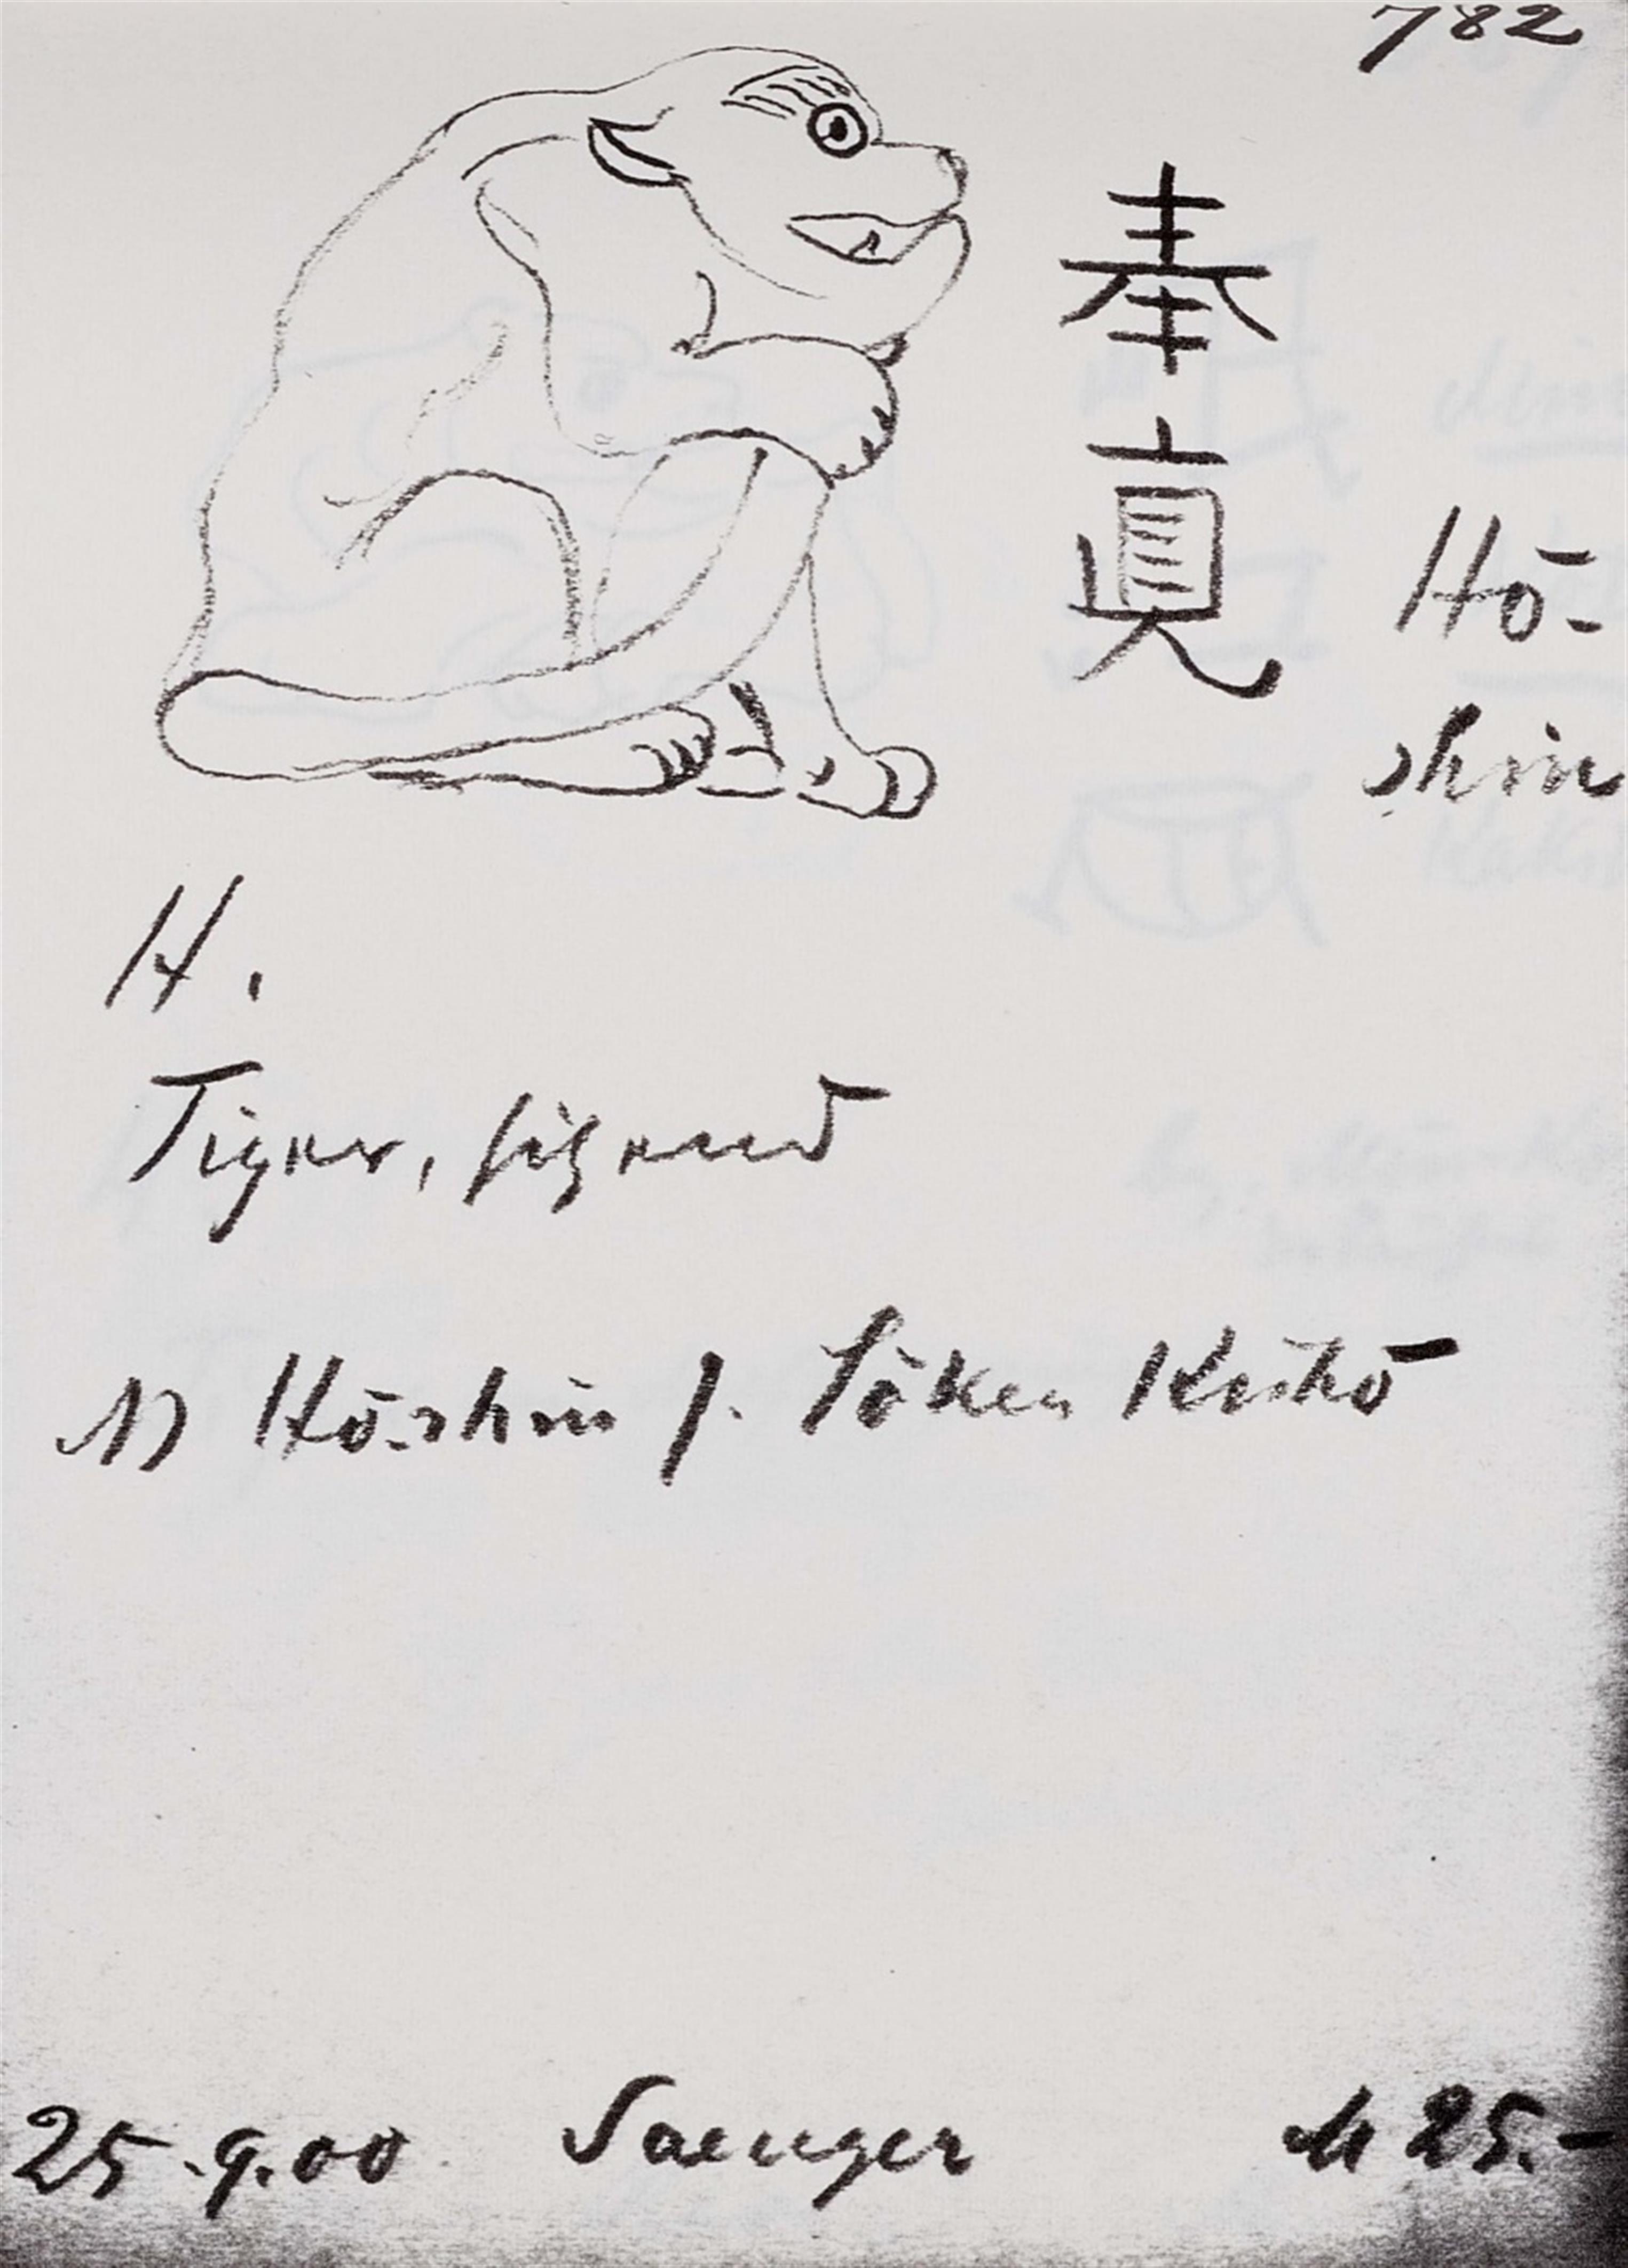 782
奉眞
Hō-
shin
H.
Tiger, sitzend
Hō-shin Sōken Kishō
25.9.00 Saenger M 25.-